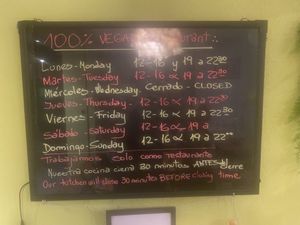 100% VEGAN Restaurant
Lunes-Monday 12-16 y 19 a 22:30
Martes-Tuesday 12-16 y 19 a 22:30
Miércoles-Wednesday Cerrado-CLOSED
Jueves-Thursday-12-16 y 19 a 22:30
Viernes-Friday 12-16 y 19 a 22:30
Sábado-Saturday 12-16 y 19 a
Domingo-Sunday 12-16 y 19 a 22:00
Trabajamos solo como restaurante
Nuestra cocina cierra 30 minutos ANTES cierre
Our kitchen will close 30 minutes BEFORE closing time